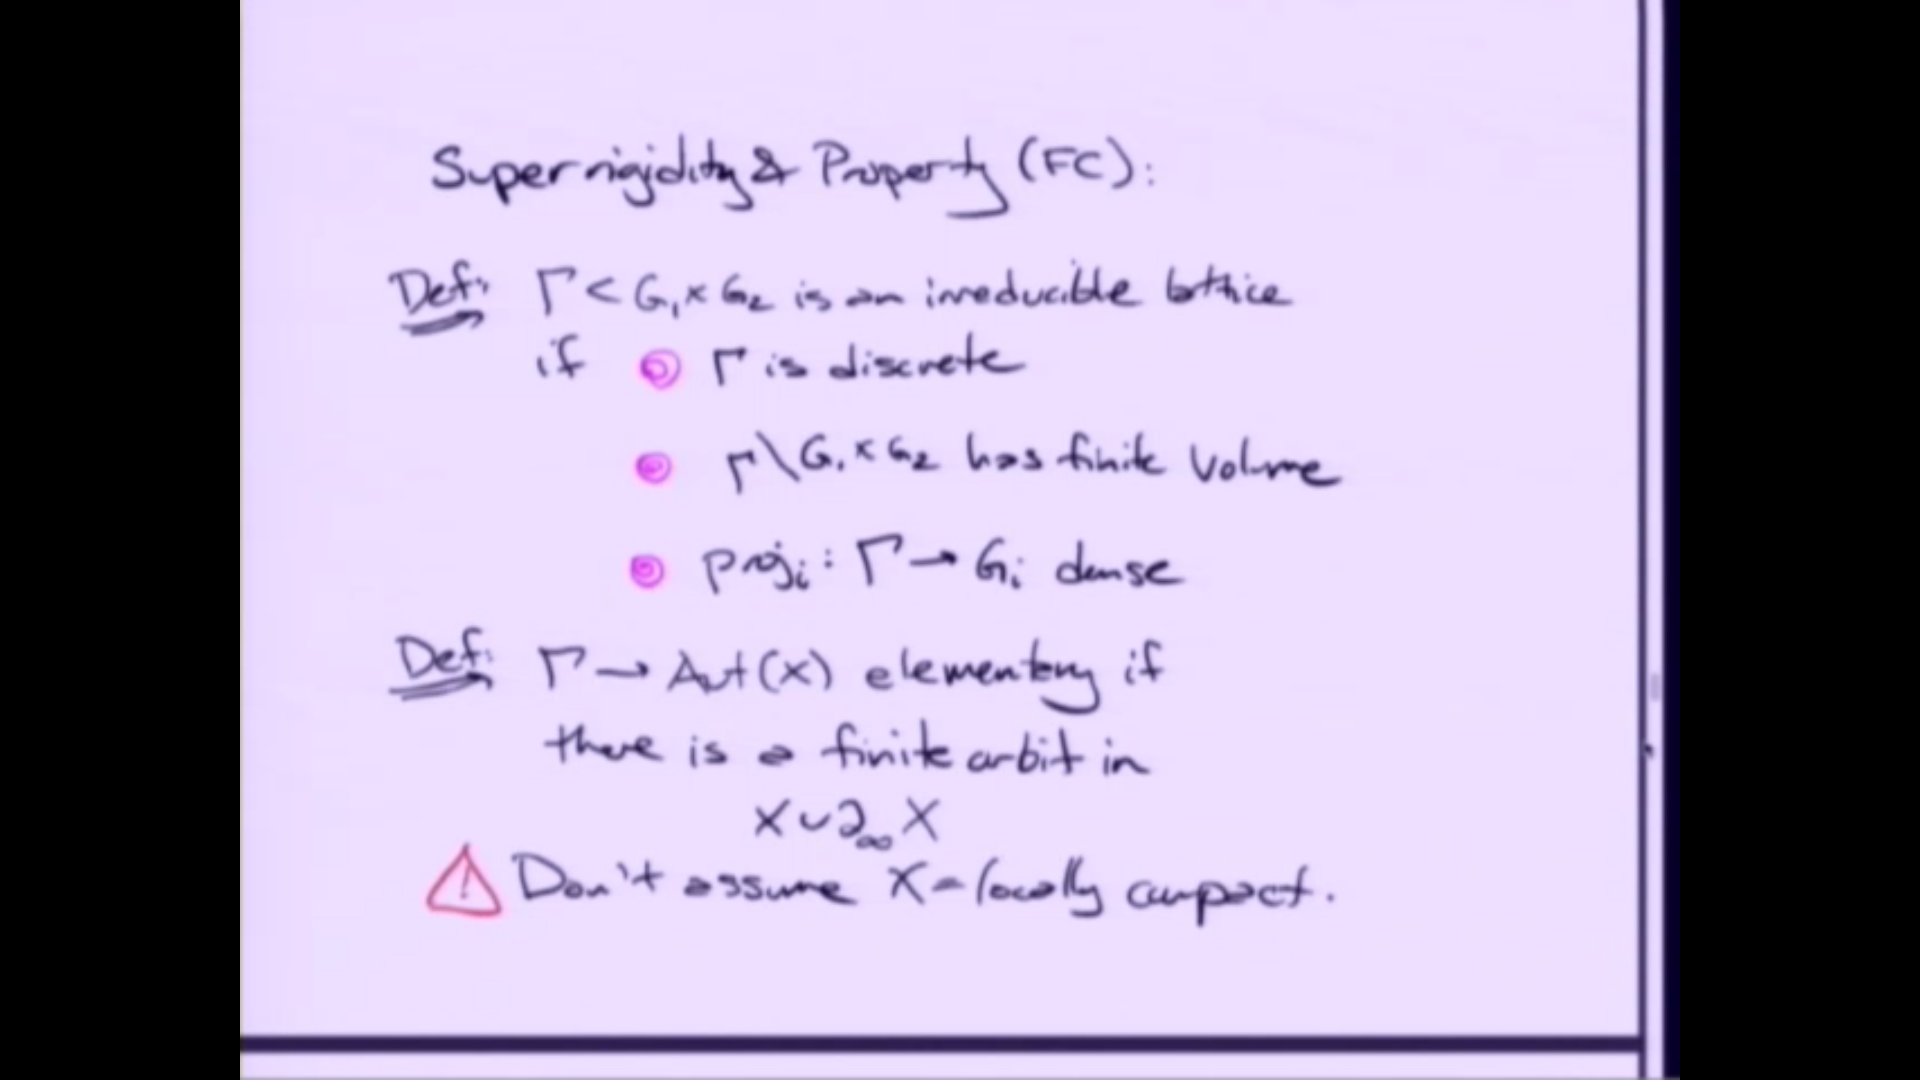 Superrigidity & Property (FC):
Def: Γ < G₁ × G₂ is an irreducible lattice
if Γ is discrete
Γ\G₁×G₂ has finite volume
projᵢ : Γ → Gᵢ dense
Def: Γ → Aut(X) elementary if
there is a finite orbit in
X ∪ ∂∞ X
! Don't assume X - locally compact.